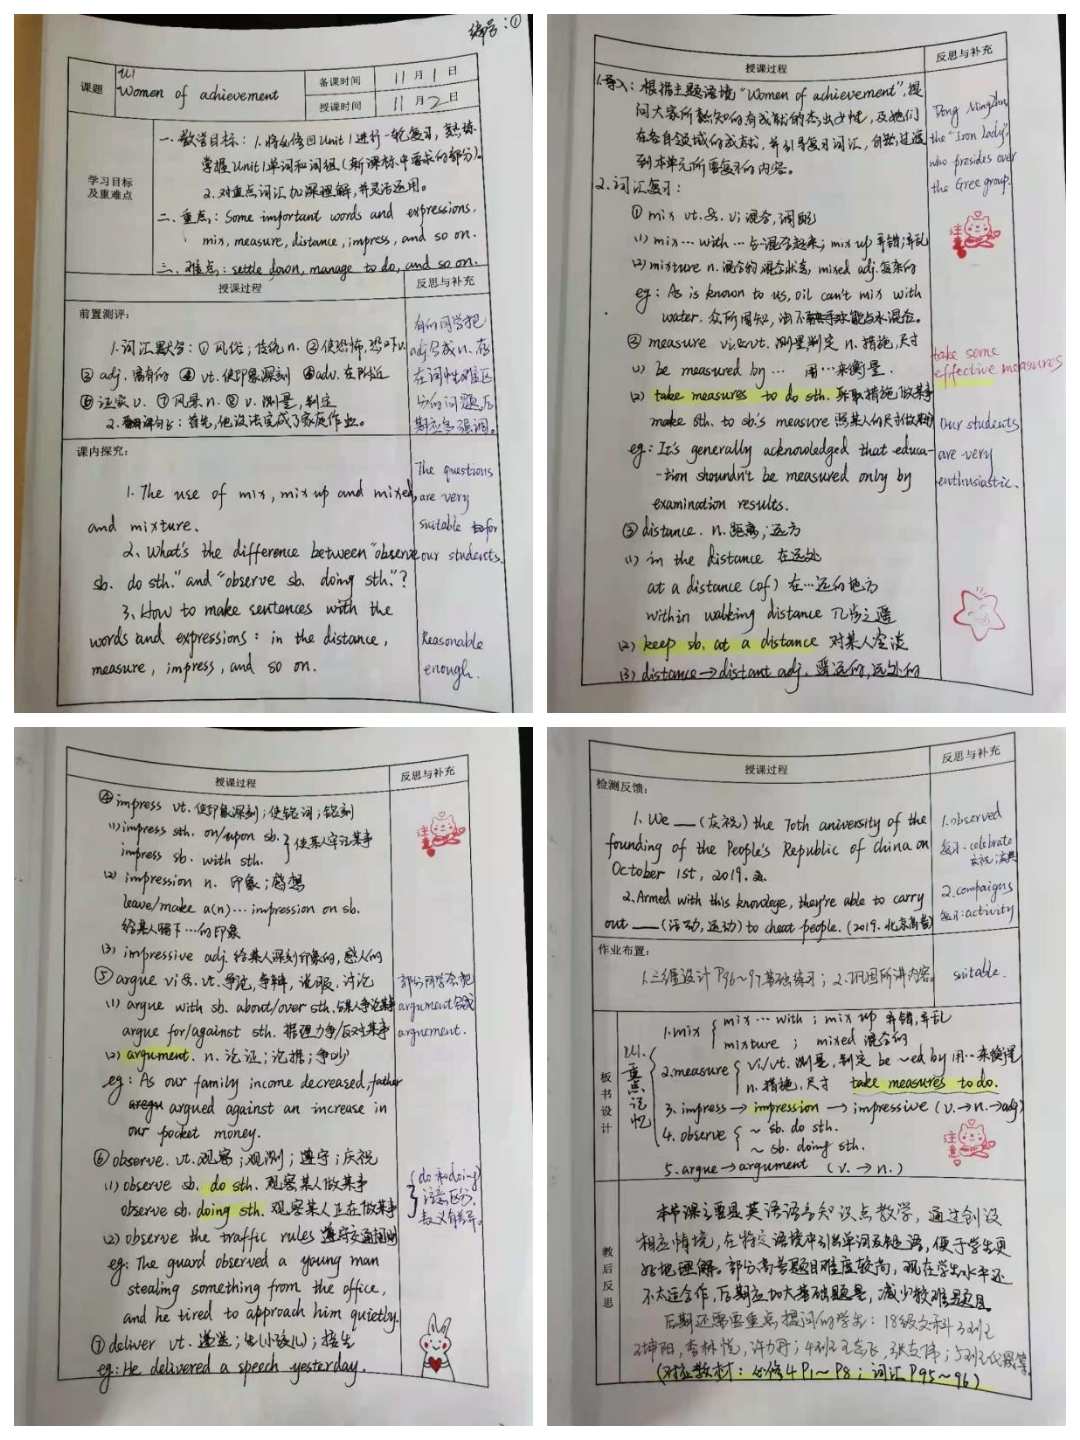 编号:①
课题
U1
Women of achievement
备课时间
11月1日
授课时间
11月2日
学习目标
及重难点
一、教学目标:1.将必修四Unit 1进行一轮复习,熟练
掌握Unit1单词和词组(新课标中要求的部分)。
2.对重点词汇加深理解,并灵活运用。
二、重点:Some important words and expressions.
mix, measure, distance, impress, and so on.
三、难点:settle down, manage to do, and so on.
授课过程
反思与补充
前置测评:
1.词汇默写:①风俗;传统n. ②使恐怖,恐吓v.
③adj.稀有的 ④vt.使印象深刻 ⑤adv.在附近
⑥证实v. ⑦风景n. ⑧v.测量,判定
2.翻译句长:首先,他设法完成了家庭作业。
有的同学把
adj写成n.存
在词性难区
分的问题后
期应当强调。
课内探究:
1. The use of mix, mix up and mixed,
and mixture.
2. What's the difference between "observe
sb. do sth." and "observe sb. doing sth."?
3. How to make sentences with the
words and expressions: in the distance,
measure, impress, and so on.
The questions
are very
suitable for
our students.
Reasonable
enough.
授课过程
反思与补充
1.导入:根据主题语境"Women of achievement",提
问大家所熟知的有成就的杰出女性,及她们
在各自领域的成就,并引导复习词汇,自然过渡
到本单元所需复习的内容。
Dong Mingzhu
the "Iron lady",
who presides over
the Gree group.
2.词汇复习:
①mix vt.&.vi混合,调配
(1)mix…with…与…混合起来;mix up弄错;弄乱
(2)mixture n.混合的混合状态, mixed adj.复杂的
eg: As is known to us, oil can't mix with
water. 众所周知,油不能与水混合。
注意
②measure vi&vt.测量判定 n.措施,尺寸
(1) be measured by… 用…来衡量.
(2) take measures to do sth.采取措施做某事
make sth. to sb's measure 照某人的尺寸做某物
eg: It's generally acknowledged that educa-
-tion shoundn't be measured only by
examination results.
take some
effective measures
Our students
are very
enthusiastic.
③distance. n.距离;远方
(1) in the distance 在远处
at a distance (of) 在…远的地方
within walking distance 几步之遥
(2) keep sb. at a distance 对某人冷淡
(3) distance→distant adj. 遥远的,远处的
授课过程
反思与补充
④impress vt.使印象深刻;使铭记;铭刻
(1)impress sth. on/upon sb.
impress sb. with sth. }使某人牢记某事
(2) impression n. 印象;感想
leave/make a(n)…impression on sb.
给某人留下…的印象
(3) impressive adj.给某人深刻印象的,感人的
注意
⑤argue vi&.vt.争论,争辩,说服,讨论
(1) argue with sb. about/over sth.与某人争论某事
argue for/against sth. 据理力争/反对某事
(2) argument. n.论证;论据;争吵
eg: As our family income decreased, father
aregu argued against an increase in
our pocket money.
部分同学会把
argument写成
arguement.
⑥observe. vt.观察;观测;遵守;庆祝
(1)observe sb. do sth. 观察某人做某事
observe sb. doing sth. 观察某人正在做某事
(2) observe the traffic rules 遵守交通规则
eg: The guard observed a young man
stealing something from the office,
and he tired to approach him quietly.
{do和doing
注意区分,
意义有差异。
⑦deliver vt. 递送;生(小孩儿);接生
eg: He delivered a speech yesterday.
授课过程
反思与补充
检测反馈:
1. We ___(庆祝) the 70th aniversity of the
founding of the People's Republic of China on
October 1st, 2019.
2. Armed with this knowlege, they're able to carry
out ___(活动,运动) to cheat people. (2019.北京高考)
1. observed
复习:celebrate
庆祝;庆典
2. campaigns
复习:activity
作业布置:
1.三维设计P96~97基础练习;2.巩固所讲内容。
suitable.
板书设计
U1.重点记忆
1.mix { mix…with; mix up 弄错,弄乱
mixture; mixed 混合的
2.measure { vi/vt. 测量,判定 be ~ed by 用…来衡量
n.措施,尺寸 take measures to do.
3. impress → impression → impressive (v.→n.→adj)
4. observe { ~ sb. do sth.
~ sb. doing sth.
5. argue→argument (v.→n.)
注意
教后反思
本节课主要是英语语言知识点教学,通过创设
相应情境,在特定语境中引出单词及短语,便于学生更
好地理解。部分高考题目难度较高,现在学生水平还
不太适合作,后期应加大基础题量,减少较难题目。
后期还需要重点提问的学生:18级文科3班
坤阳,李林悦,许力丹;4班王志飞,张
(对应教材:必修4 P1~P8;词汇P95~96)